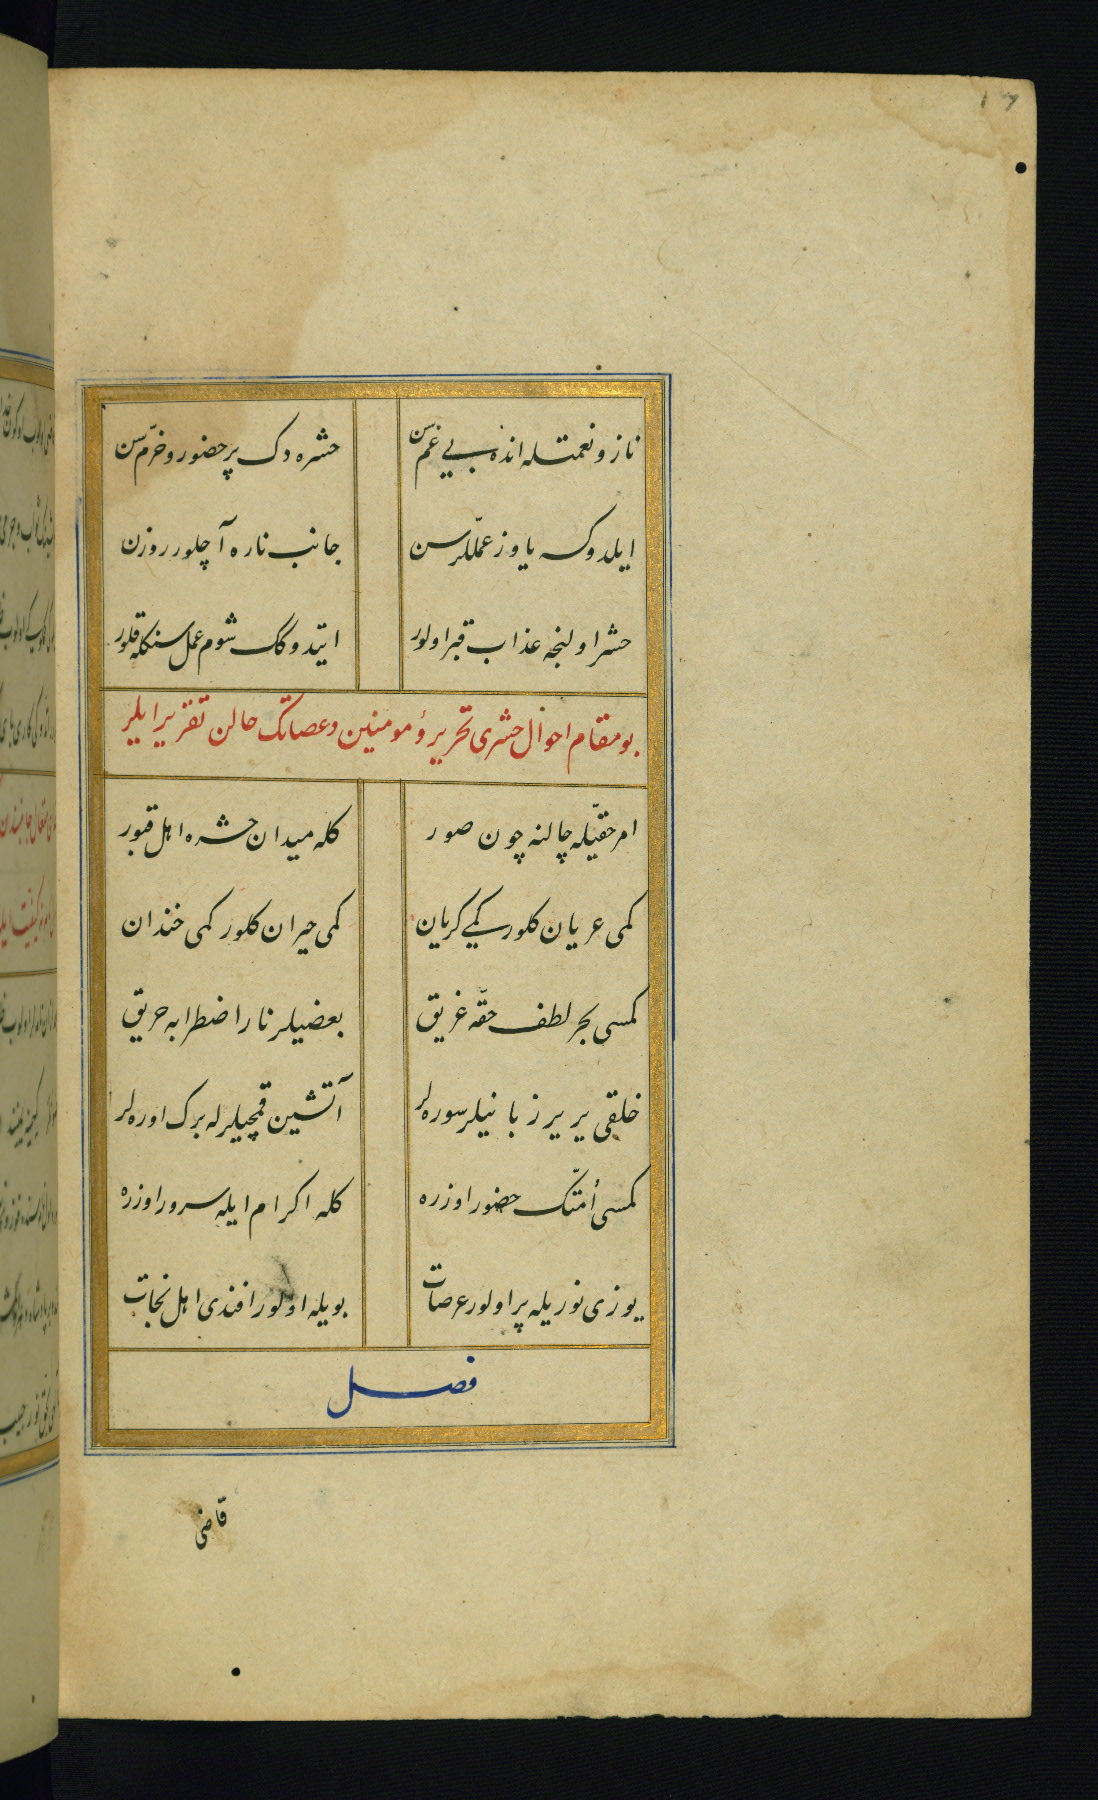 ناز و نعمتله انده بی غم سن حشره دک پر حضور و خرم سن
ایلدوکسه یاوز عمللر سن جانب ناره آچلور روزن
حشر اولنجه عذاب قبر اولور ایتدوکک شوم عمل سنکله قلور
بو مقام احوال حشری تحریر و مومنین و عصاتک حالن تقریر ایلر
امر حقیّله چالنه چون صور کله میدان حشره اهل قبور
کمی عریان کلور کیمی کریان کمی حیران کلور کمی خندان
کمسی بحر لطف حقّه غریق بعضیلر نار اضطرابه حریق
خلقی یر یر زبانیلر سوره لر آتشین قمچیلرله برک اوره لر
کمسی أمّتک حضور اوزره کله اکرام ایله سرور اوزره
یوزی نوریله پر اولور عرصات بویله اولور افندی اهل نجات
فصل
قاضی